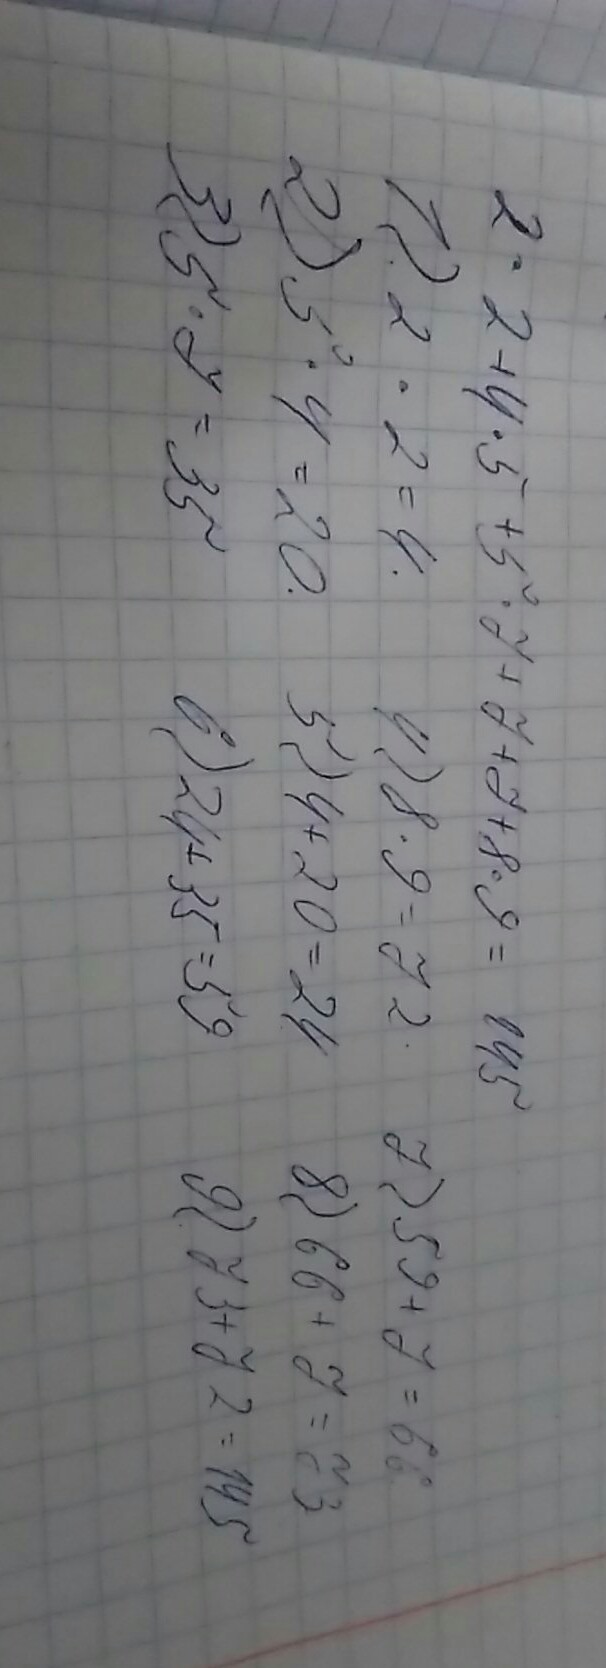 2·2+4·5+5·7+7+7+8·9= 145
1) 2·2=4. 4) 8·9=72. 7) 59+7=66
2) 5·4=20. 5) 4+20=24 8) 66+7=73
3) 5·7=35 6) 24+35=59 9) 73+72=145